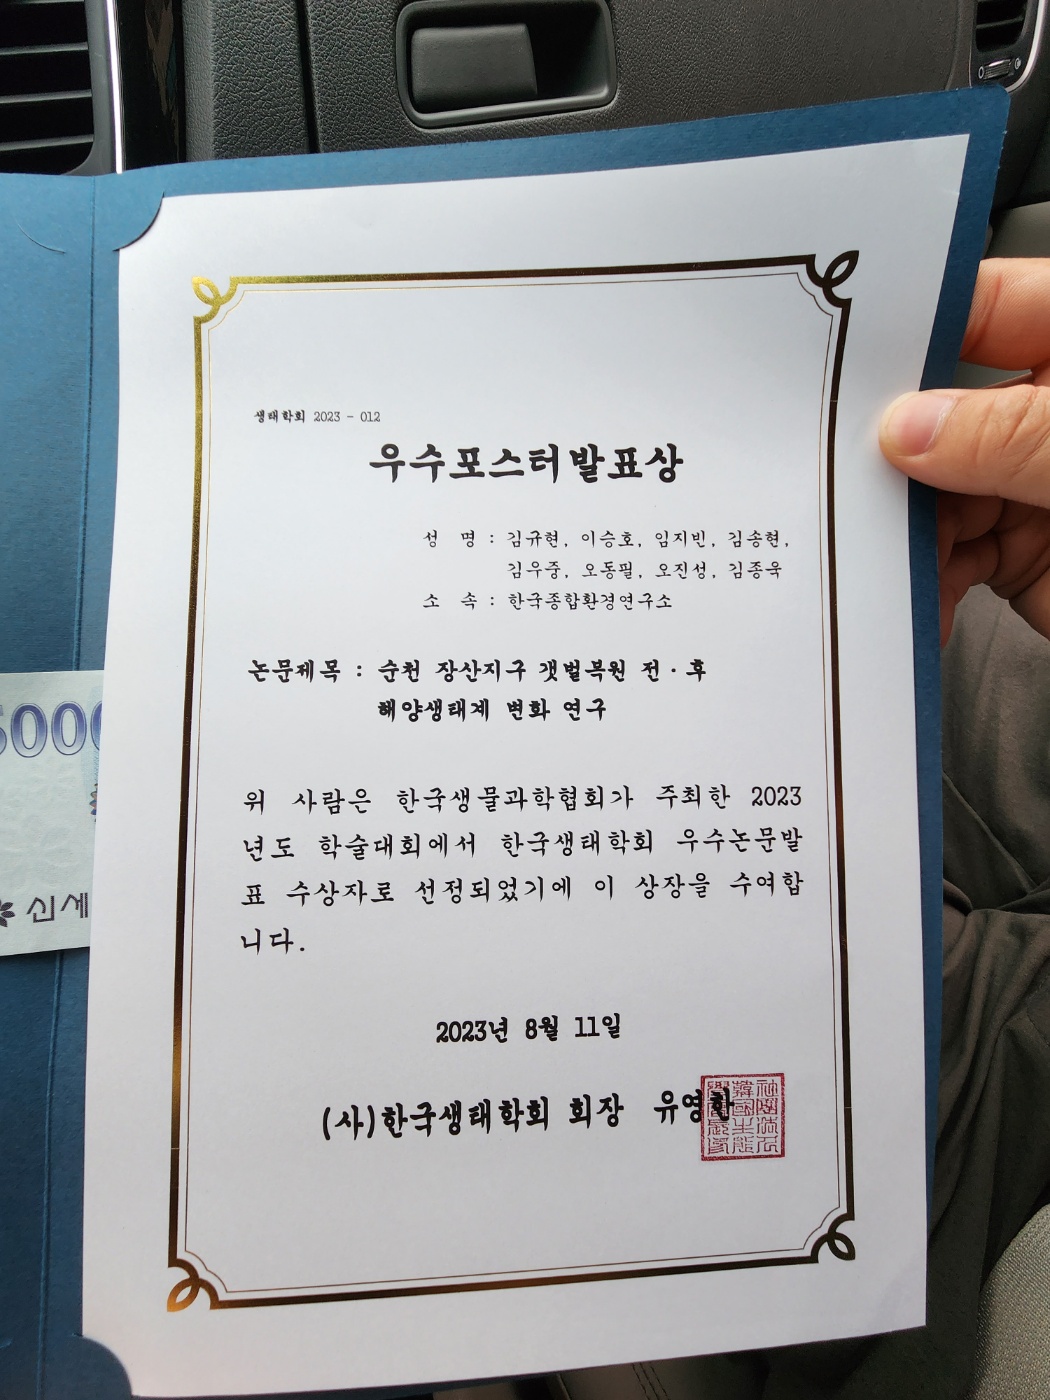 생태학회 2023 - 012
우수포스터발표상
성 명 : 김규현, 이승호, 임지빈, 김송현,
김우중, 오동필, 오진성, 김종욱
소 속 : 한국종합환경연구소
논문제목 : 순천 장산지구 갯벌복원 전·후
해양생태계 변화 연구
위 사람은 한국생물과학협회가 주최한 2023
년도 학술대회에서 한국생태학회 우수논문발
표 수상자로 선정되었기에 이 상장을 수여합
니다.
2023년 8월 11일
(사)한국생태학회 회장 유영한
5000
신세